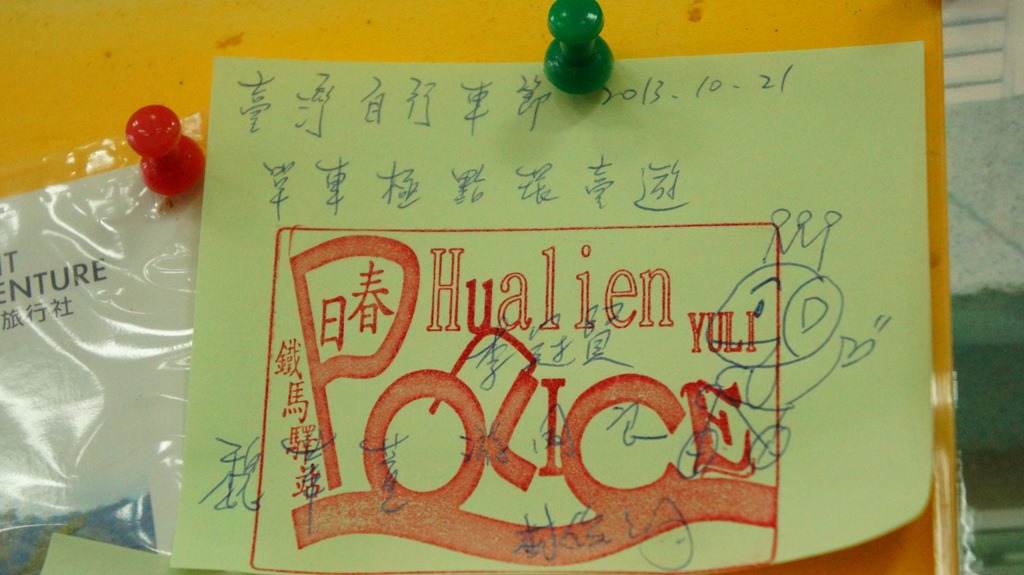 臺灣自行車節 2013.10.21
單車極點環臺遊
Hualien
春日
YULI
鐵馬驛站
POLICE
ENTURE
旅行社